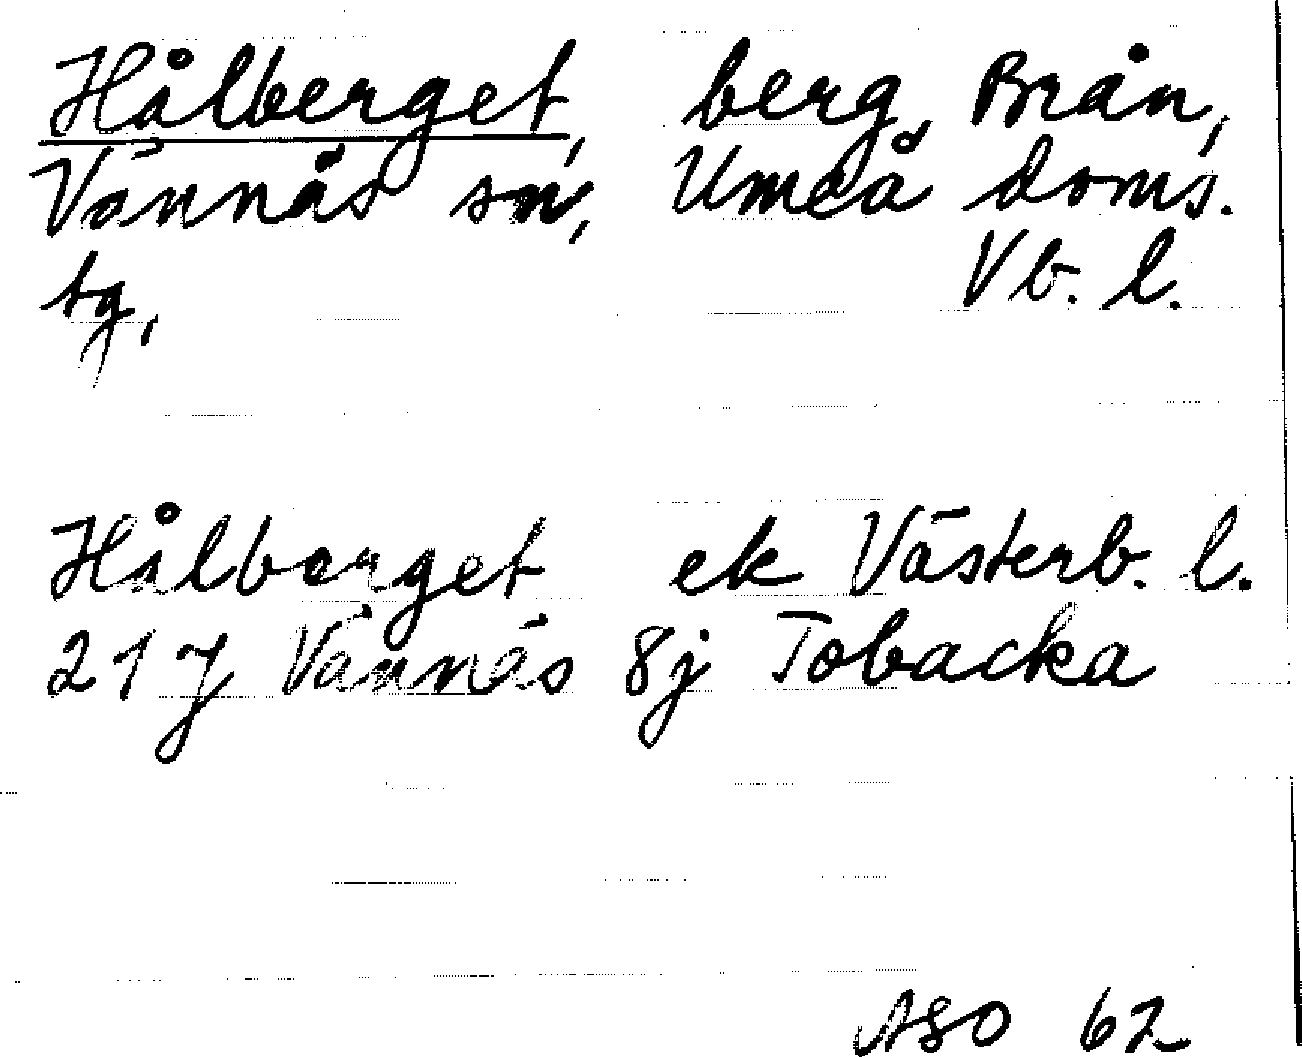 Hålberget, berg, Brån,
Vännäs sn, Umeå doms.
tg, Vb. l.
Hålberget ek Västerb. l.
21 J Vännäs 8j Tobacka
ASO 62